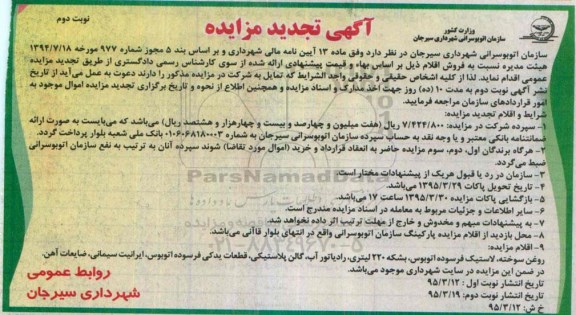 نوبت دوم
آگهی تجدید مزایده
وزارت کشور
سازمان اتوبوسرانی شهرداری سیرجان
سازمان اتوبوسرانی شهرداری سیرجان در نظر دارد وفق ماده ۱۳ آیین نامه مالی شهرداری و بر اساس بند ۵ مجوز شماره ۹۷۷ مورخه ۱۳۹۴/۷/۱۸
هیئت مدیره نسبت به فروش اقلام ذیل بر اساس بهاء و قیمت پیشنهادی ارائه شده از سوی کارشناس رسمی دادگستری از طریق تجدید مزایده
عمومی اقدام نماید. لذا از کلیه اشخاص حقیقی و حقوقی واجد الشرایط که تمایل به شرکت در مزایده مذکور را دارند دعوت به عمل می‌آید از تاریخ
نشر آگهی نوبت دوم به مدت ۱۰ (ده) روز جهت اخذ مدارک و اسناد مزایده و همچنین اطلاع از نحوه و تاریخ برگزاری تجدید مزایده اموال موجود به
امور قراردادهای سازمان مراجعه فرمایید.
شرایط و اقلام تجدید مزایده:
۱- سپرده شرکت در مزایده: ۷/۴۲۴/۸۰۰ ریال (هفت میلیون و چهارصد و بیست و چهارهزار و هشتصد ریال) می‌باشد که می‌بایست به صورت ارائه
ضمانتنامه بانکی معتبر و یا وجه نقد به حساب سپرده سازمان اتوبوسرانی سیرجان به شماره ۰۱۰۶۰۶۸۱۸۰۰۰۳ بانک ملی شعبه بلوار پرداخت گردد.
۲- هرگاه برندگان اول، دوم، سوم مزایده حاضر به انعقاد قرارداد و خرید (اموال مورد تقاضا) شوند سپرده آنان به ترتیب به نفع سازمان اتوبوسرانی
ضبط می‌گردد.
۳- سازمان در رد یا قبول هریک از پیشنهادات مختار است.
۴- تاریخ تحویل پاکات ۱۳۹۵/۳/۲۹ می‌باشد.
۵- بازگشایی پاکات مزایده ۱۳۹۵/۳/۳۰ ساعت ۱۷ می‌باشد.
۶- سایر اطلاعات و جزئیات مربوط به معامله در اسناد مزایده مندرج است.
۷- به پیشنهادات مبهم و مخدوش و خارج از مهلت ترتیب اثر داده نخواهد شد.
۸- محل بازدید از اقلام مزایده پارکینگ سازمان اتوبوسرانی واقع در انتهای بلوار قاآنی می‌باشد.
۹- اقلام مزایده:
روغن سوخته، لاستیک فرسوده اتوبوس، بشکه ۲۲۰ لیتری، رادیاتور آب، گالن پلاستیکی، قطعات یدکی فرسوده اتوبوس، ایرانیت سیمانی، ضایعات آهن.
در ضمن این مزایده در سایت شهرداری موجود می‌باشد.
تاریخ انتشار نوبت اول : ۹۵/۳/۱۲
تاریخ انتشار نوبت دوم: ۹۵/۳/۱۹
خ ش: ۹۵/۳/۱۲
روابط عمومی
شهرداری سیرجان
ParsNamadData
۰۲۱-۸۸۳۴۹۶۷۰-۵